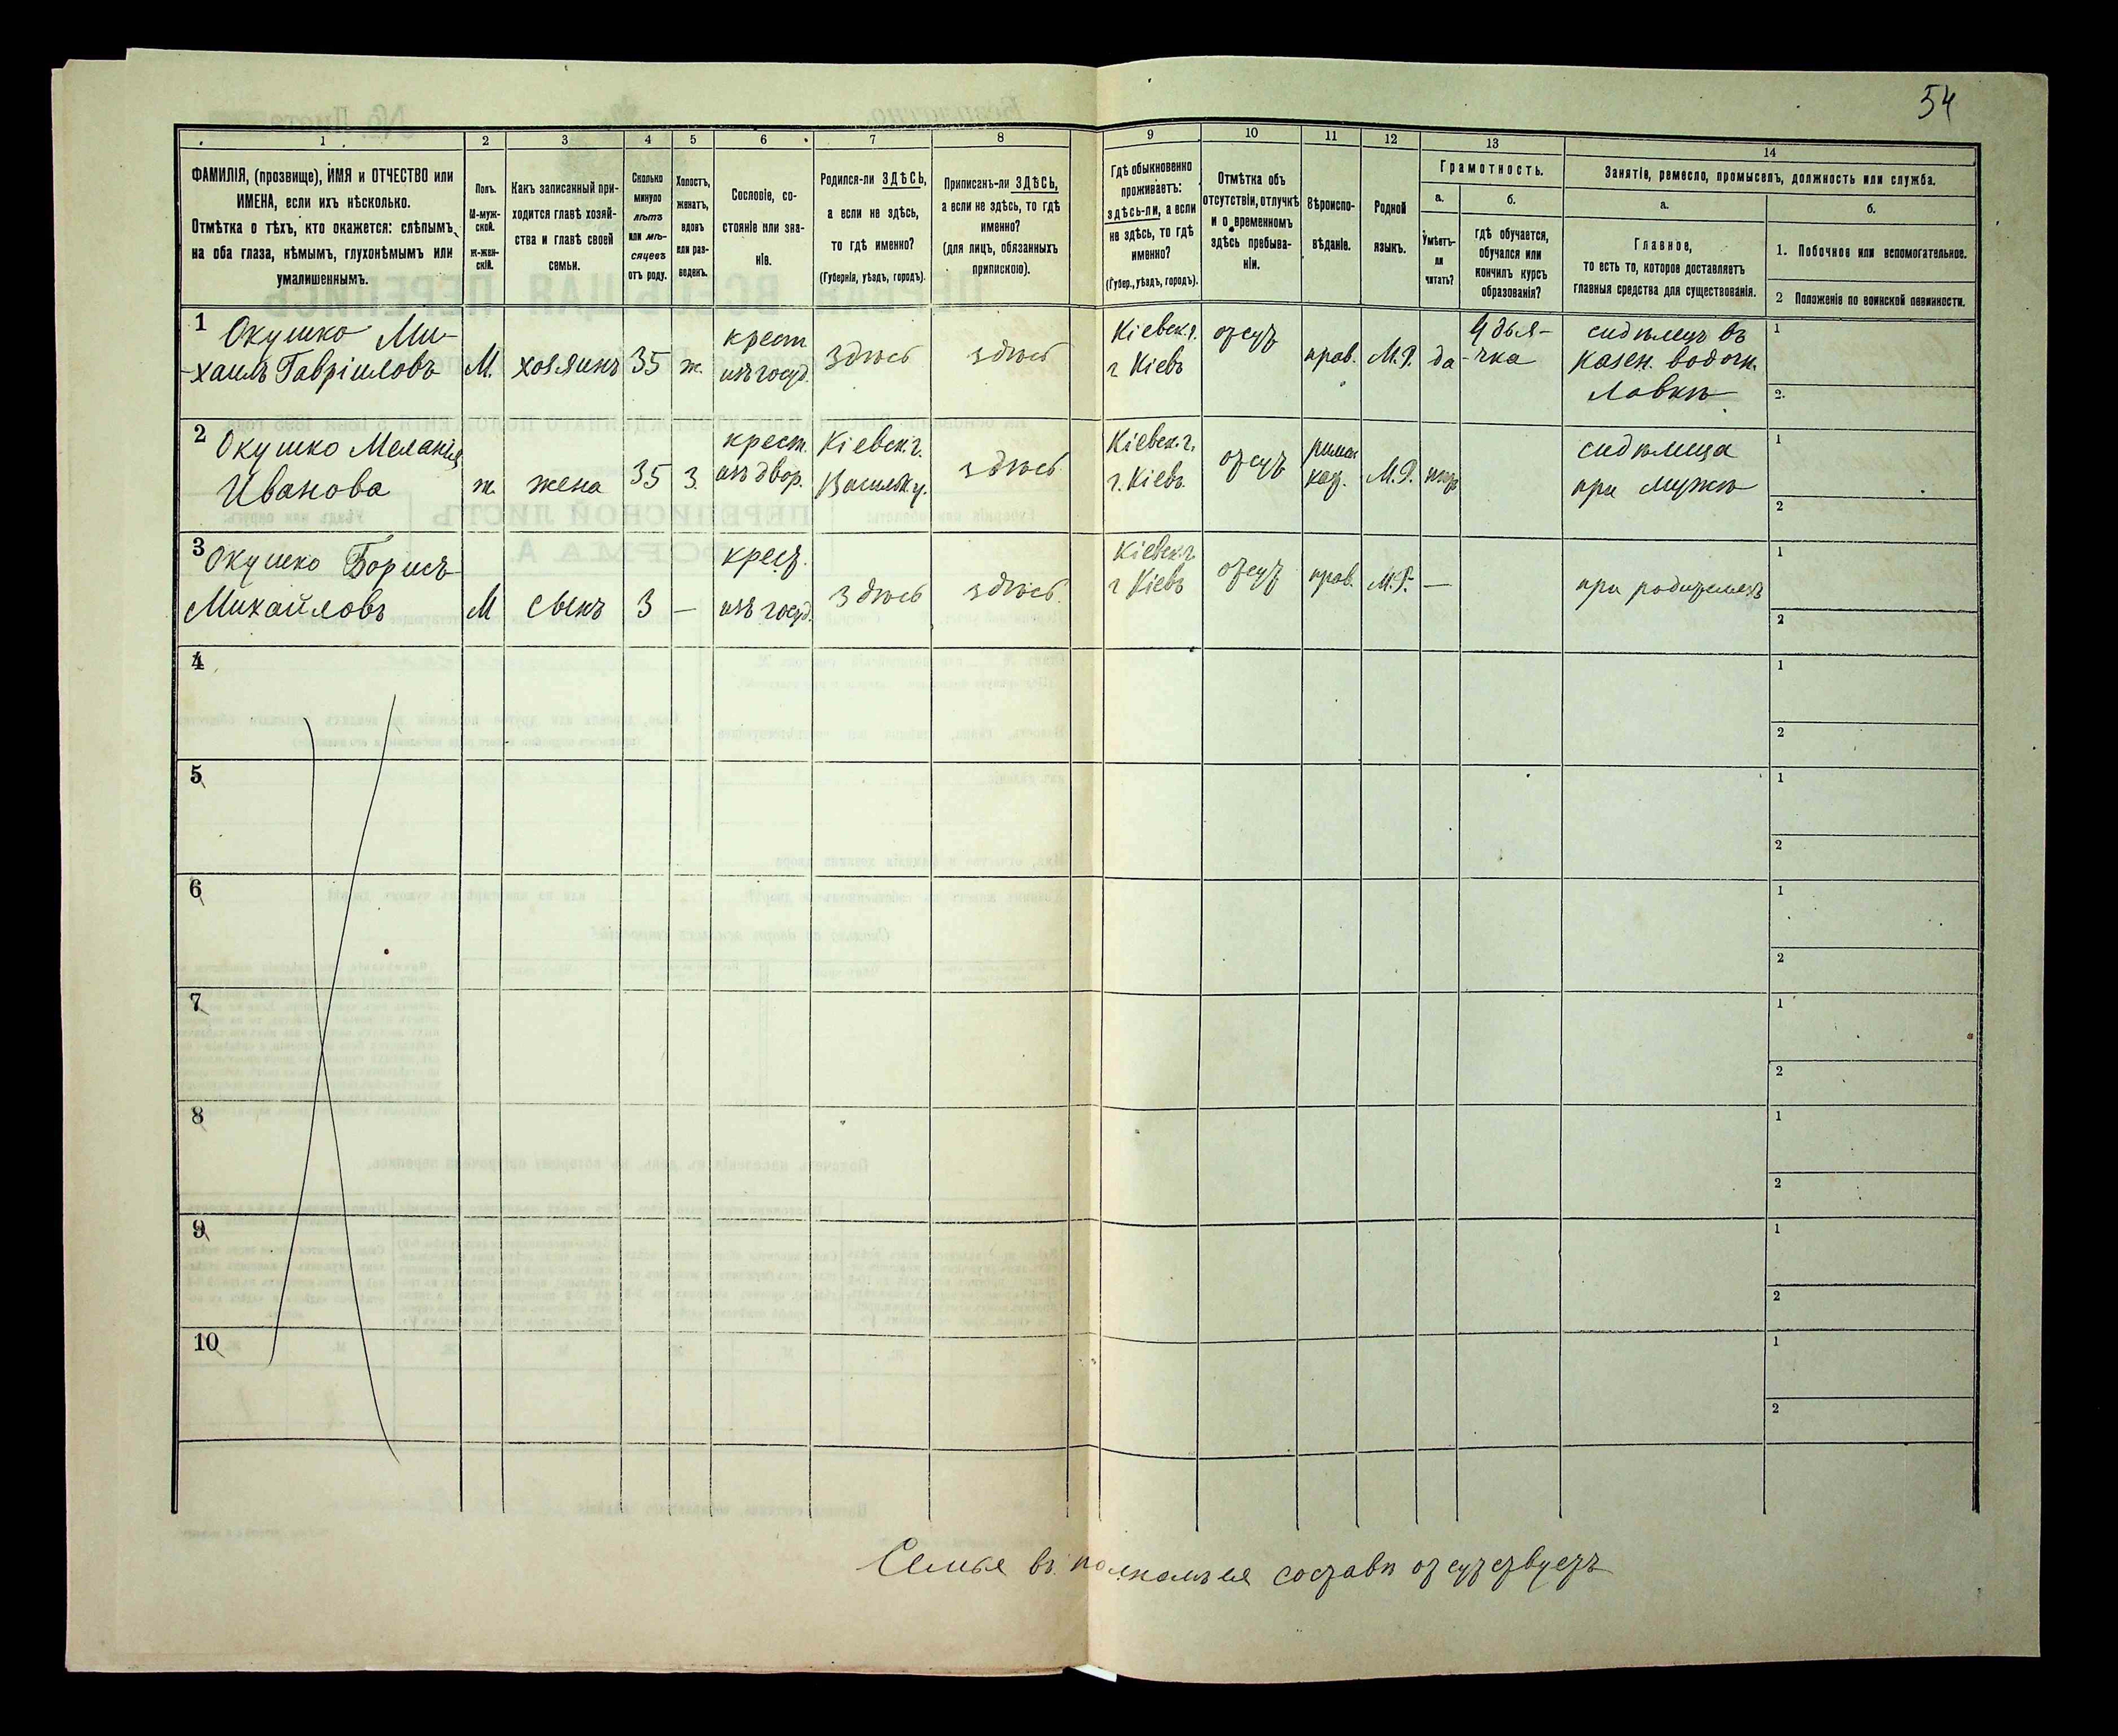 54
1
2
3
4
5
6
7
8
9
10
11
12
13
14
ФАМИЛІЯ, (прозвище), ИМЯ и ОТЧЕСТВО или
ИМЕНА, если ихъ нѣсколько.
Отмѣтка о тѣхъ, кто окажется: слѣпымъ
на оба глаза, нѣмымъ, глухонѣмымъ или
умалишеннымъ.
Полъ.
М-муж-
ской.
Ж-жен-
скій.
Какъ записанный при-
ходится главѣ хозяй-
ства и главѣ своей
семьи.
Сколько
минуло
лѣтъ
или мѣ-
сяцевъ
отъ роду.
Холостъ,
женатъ,
вдовъ
или раз-
веденъ.
Сословіе, со-
стояніе или зва-
ніе.
Родился-ли ЗДѢСЬ,
а если не здѣсь,
то гдѣ именно?
(Губернія, уѣздъ, городъ).
Приписанъ-ли ЗДѢСЬ,
а если не здѣсь, то гдѣ
именно?
(для лицъ, обязанныхъ
припискою).
Гдѣ обыкновенно
проживаетъ:
здѣсь-ли, а если
не здѣсь, то гдѣ
именно?
(Губер., уѣздъ, городъ).
Отмѣтка объ
отсутствіи, отлучкѣ
и о временномъ
здѣсь пребыва-
ніи.
Вѣроиспо-
вѣданіе.
Родной
языкъ.
Грамотность.
а.
Умѣетъ-
ли
читать?
б.
гдѣ обучается,
обучался или
кончилъ курсъ
образованія?
Занятіе, ремесло, промыселъ, должность или служба.
а.
Главное,
то есть то, которое доставляетъ
главныя средства для существованія.
б.
1. Побочное или вспомогательное.
2 Положеніе по воинской повинности.
1 Окушко Ми-
-хаилъ Гавріиловъ
М.
хозяинъ
35
ж.
крест
изъ госуд.
здѣсь
здѣсь
Кіевск. г.
г Кіевъ
отсут
прав.
М.Р.
да
У дья-
-чка
сидѣлецъ въ
казен. водочн.
лавкѣ
1
2.
2 Окушко Меланія
Иванова
ж.
жена
35
З.
крест.
изъ двор.
Кіевск. г.
Васильк. у.
здѣсь.
Кіевск. г.
г. Кіевъ.
отсут
римск
кат.
М.Р.
сидѣлица
при мужѣ
1
2
3 Окушко Борисъ
Михайловъ
М
сынъ
3
—
крест.
изъ госуд.
здѣсь
здѣсь.
Кіевск. г.
г Кіевъ
отсут
прав.
М.Р.
—
при родителяхъ
1
2
4
1
2
5
1
2
6
1
2
7
1
2
8
1
2
9
1
2
10
1
2
Семья въ полномъ ея составѣ отсутствуетъ